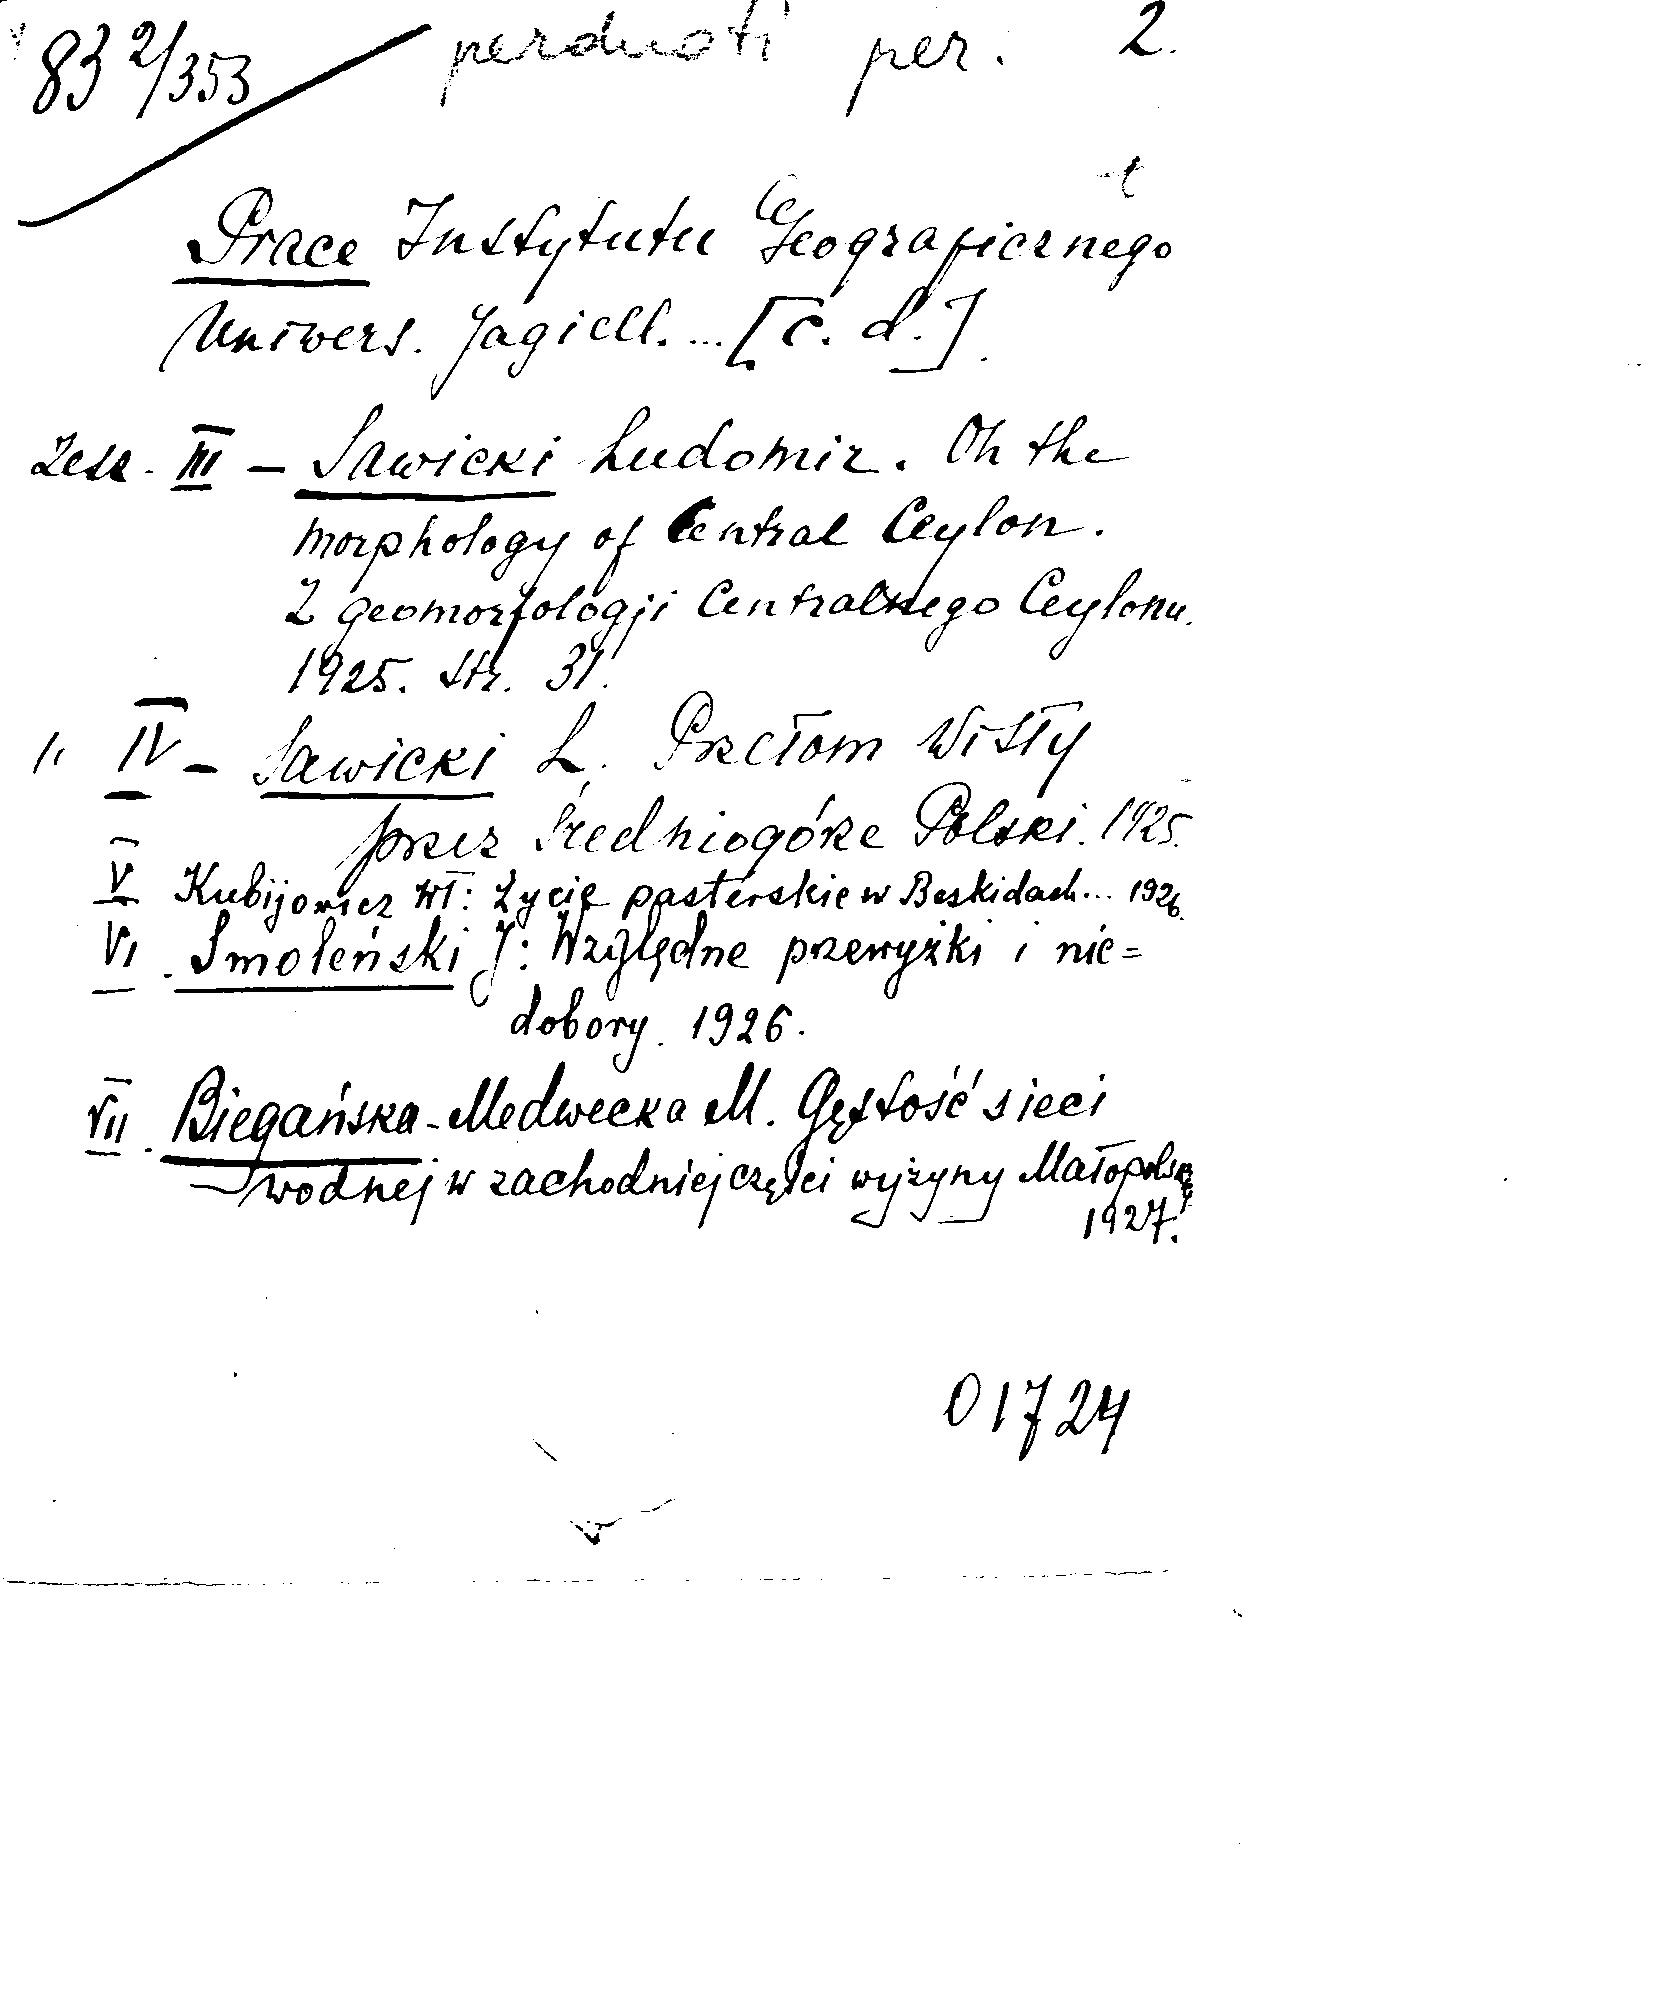 83 2/353 perduoti per. 2.
t
Prace Instytutu Geograficznego
Uniwers. Jagiell. ... [c. d.]
Zesz. III - Sawicki Ludomir. On the
morphology of Central Ceylon.
Z geomorfologji Centralnego Ceylonu.
1925. str. 31.
" IV - Sawicki L. Przełom Wisły
przez Średniogórze Polski. 1925.
V Kubijowicz Wł: Życie pasterskie w Beskidach... 1926.
VI. Smoleński J: Względne przewyżki i nie=
dobory. 1926.
VII. Biegańska-Medwecka M. Gęstość sieci
wodnej w zachodniej części wyżyny Małopolskiej
1927.
01724